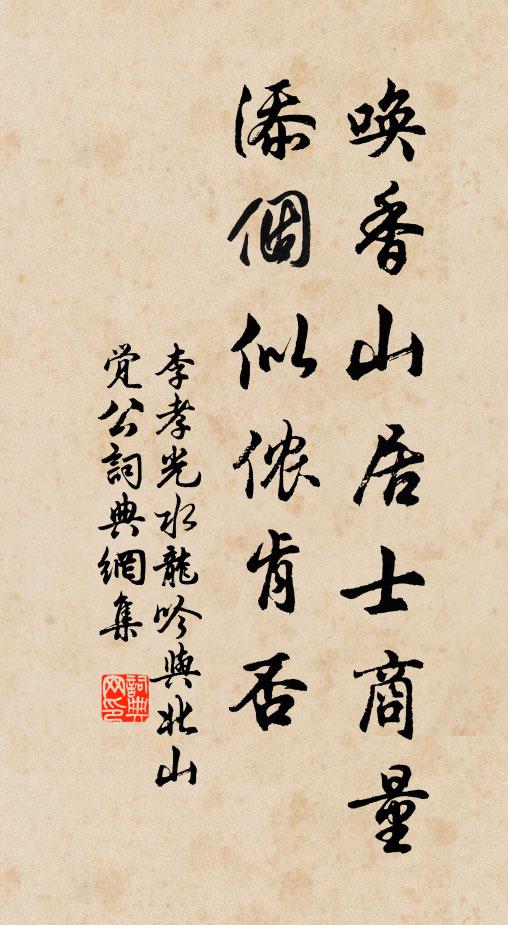 唤香山居士商量
添個似侬肯否
李孝光水龍吟與北山
觉公詞典網集
詞典
网印